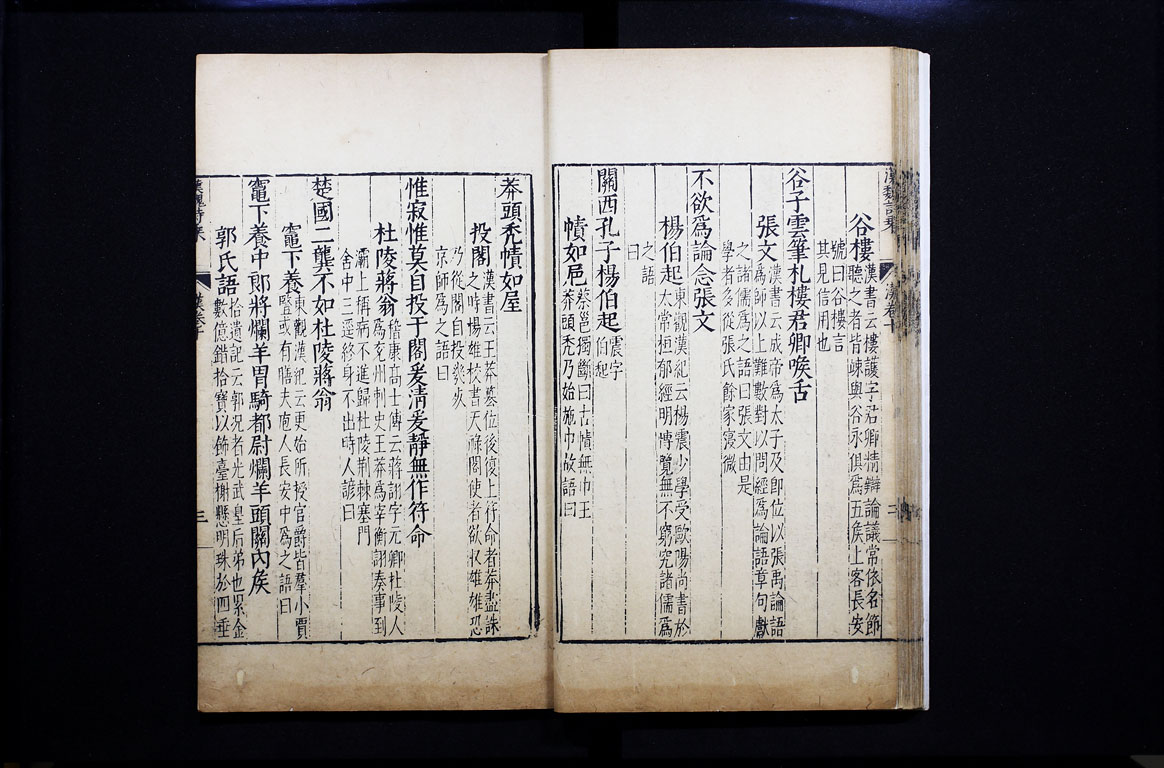 谷樓
漢書云樓護字君卿精辯論議常依名節
聽之者皆竦與谷永俱爲五矦上客長安
號曰谷樓言
其見信用也
谷子雲筆札樓君卿喉舌
張文
漢書云成帝爲太子及即位以張禹論語
爲師以上難數對以問經爲論語章句獻
之諸儒爲之語曰張文由是
學者多從張氏餘家寖微
不欲爲論念張文
楊伯起
東觀漢紀云楊震少學受歐陽尚書於
太常桓郁經明博覽無不窮究諸儒爲
之語
曰
關西孔子楊伯起
震字
伯起
幘如屋
蔡邕獨斷曰古幘無巾王
莽頭禿乃始施巾故語曰
莽頭禿幘如屋
投閣
漢書云王莽墓位後復上符命者莽盡誅
之時楊雄校書天祿閣使者欲收雄雄恐
乃從閣自投幾死
京師爲之語曰
惟寂惟莫自投于閣爰清爰靜無作符命
杜陵蔣翁
嵇康高士傳云蔣詡字元卿杜陵人
爲兗州刺史王莽爲宰衡詡奏事到
灞上稱病不進歸杜陵荆棘塞門
舍中三逕終身不出時人諺曰
楚國二龔不如杜陵蔣翁
竈下養
東觀漢紀云更始所授官爵皆羣小賈
豎或有膳夫庖人長安中爲之語曰
竈下養中郎將爛羊胃騎都尉爛羊頭關內矦
郭氏語
拾遺記云郭況者光武皇后弟也累金
數億錯拾寶以飾臺榭懸明珠於四垂
漢卷十
二
三